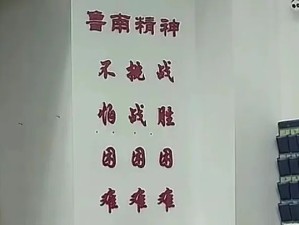 鲁南精神
不怕困难
挑战困难
战胜困难